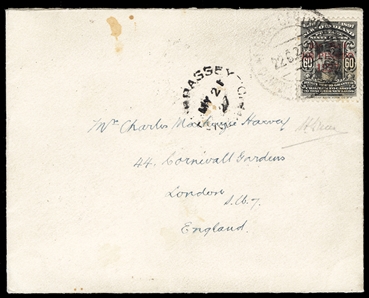 60 60
BRASSEY
MY 21
Mr Charles Mackenzie Harvey
44. Cornwall Gardens
London
S.W.7.
England.